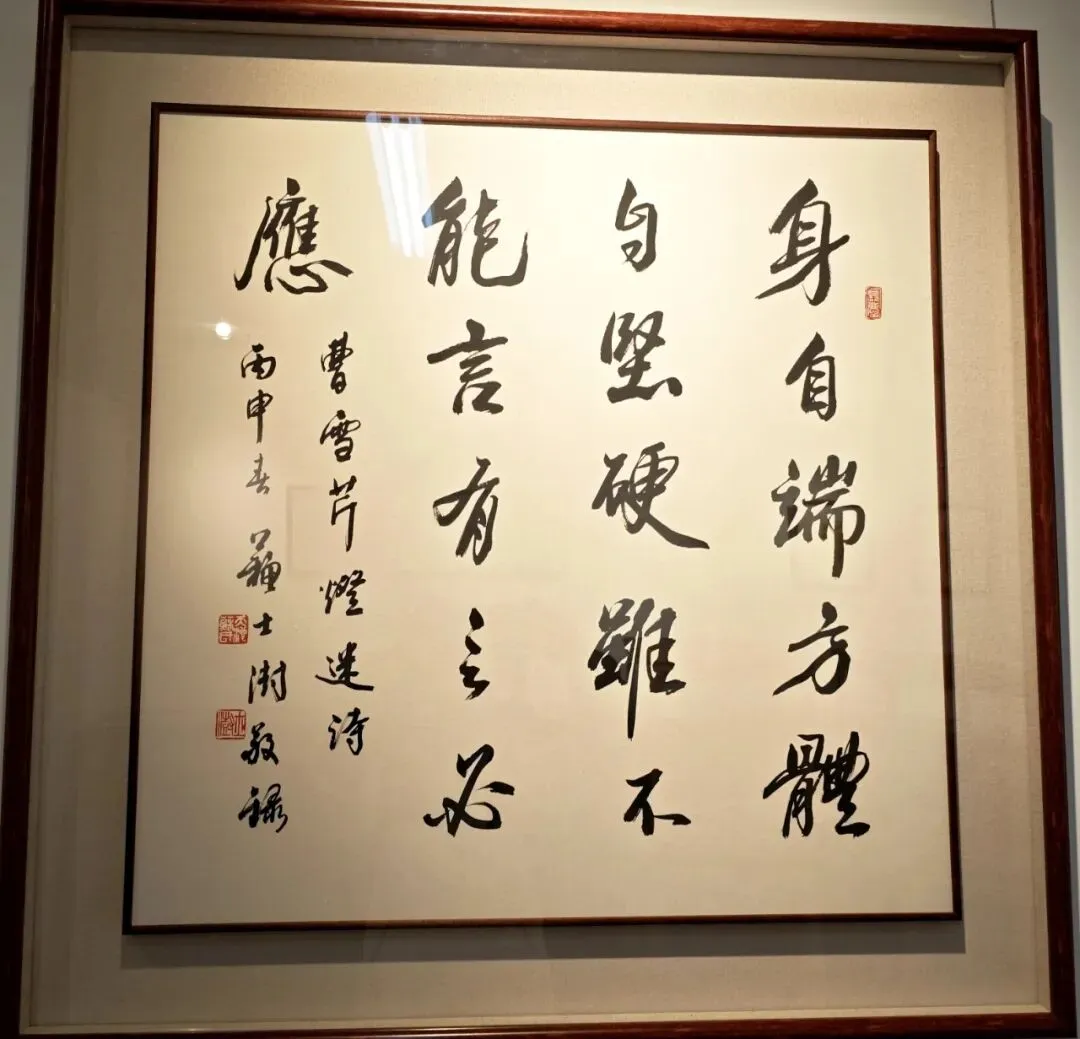 身自端方體
自堅硬雖不
能言有言必
應
曹雪芹燈迷詩
丙申春蘇士澍敬録